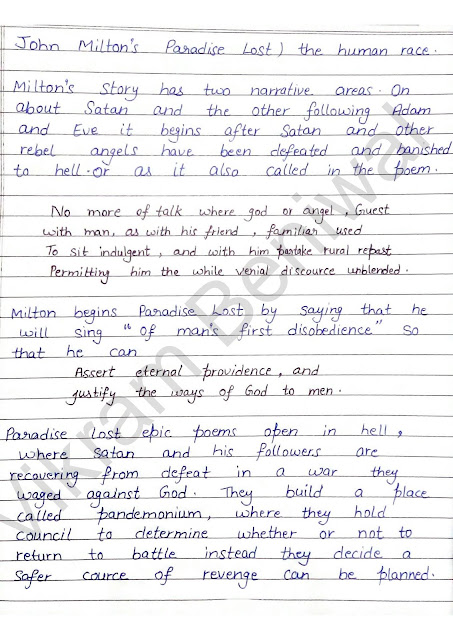 John Milton's Paradise Lost) the human race.
Milton's story has two narrative areas. On
about Satan and the other following Adam
and Eve it begins after Satan and other
rebel angels have been defeated and banished
to hell. or as it also called in the poem.
No more of talk where god or angel, Guest
with man, as with his friend, familiar used
To sit indulgent, and with him partake rural repast
Permitting him the while venial discource unblended.
Milton begins Paradise Lost by saying that he
will sing "of man's first disobedience" so
that he can
Assert eternal providence, and
justify the ways of God to men.
Paradise Lost epic poems open in hell,
where Satan and his followers are
recovering from defeat in a war they
waged against God. They build a place
called pandemonium, where they hold
council to determine whether or not to
return to battle instead they decide a
safer cource of revenge can be planned.
Vikram Beniwal